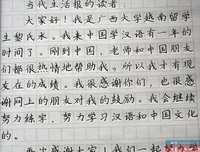 当代生活报的读者：
大家好！我是广西大学越南留学
生黎氏禾。我来中国学汉语有一年的
时间了。刚到中国，老师和中国朋友
们都很热情地帮助我。所以我才有现
在的成绩。我很感谢你们，也很感
谢网上的朋友对我的鼓励。我会继续
努力练字，努力学习汉语和中国文化
的。
再次感谢大家！我们一起